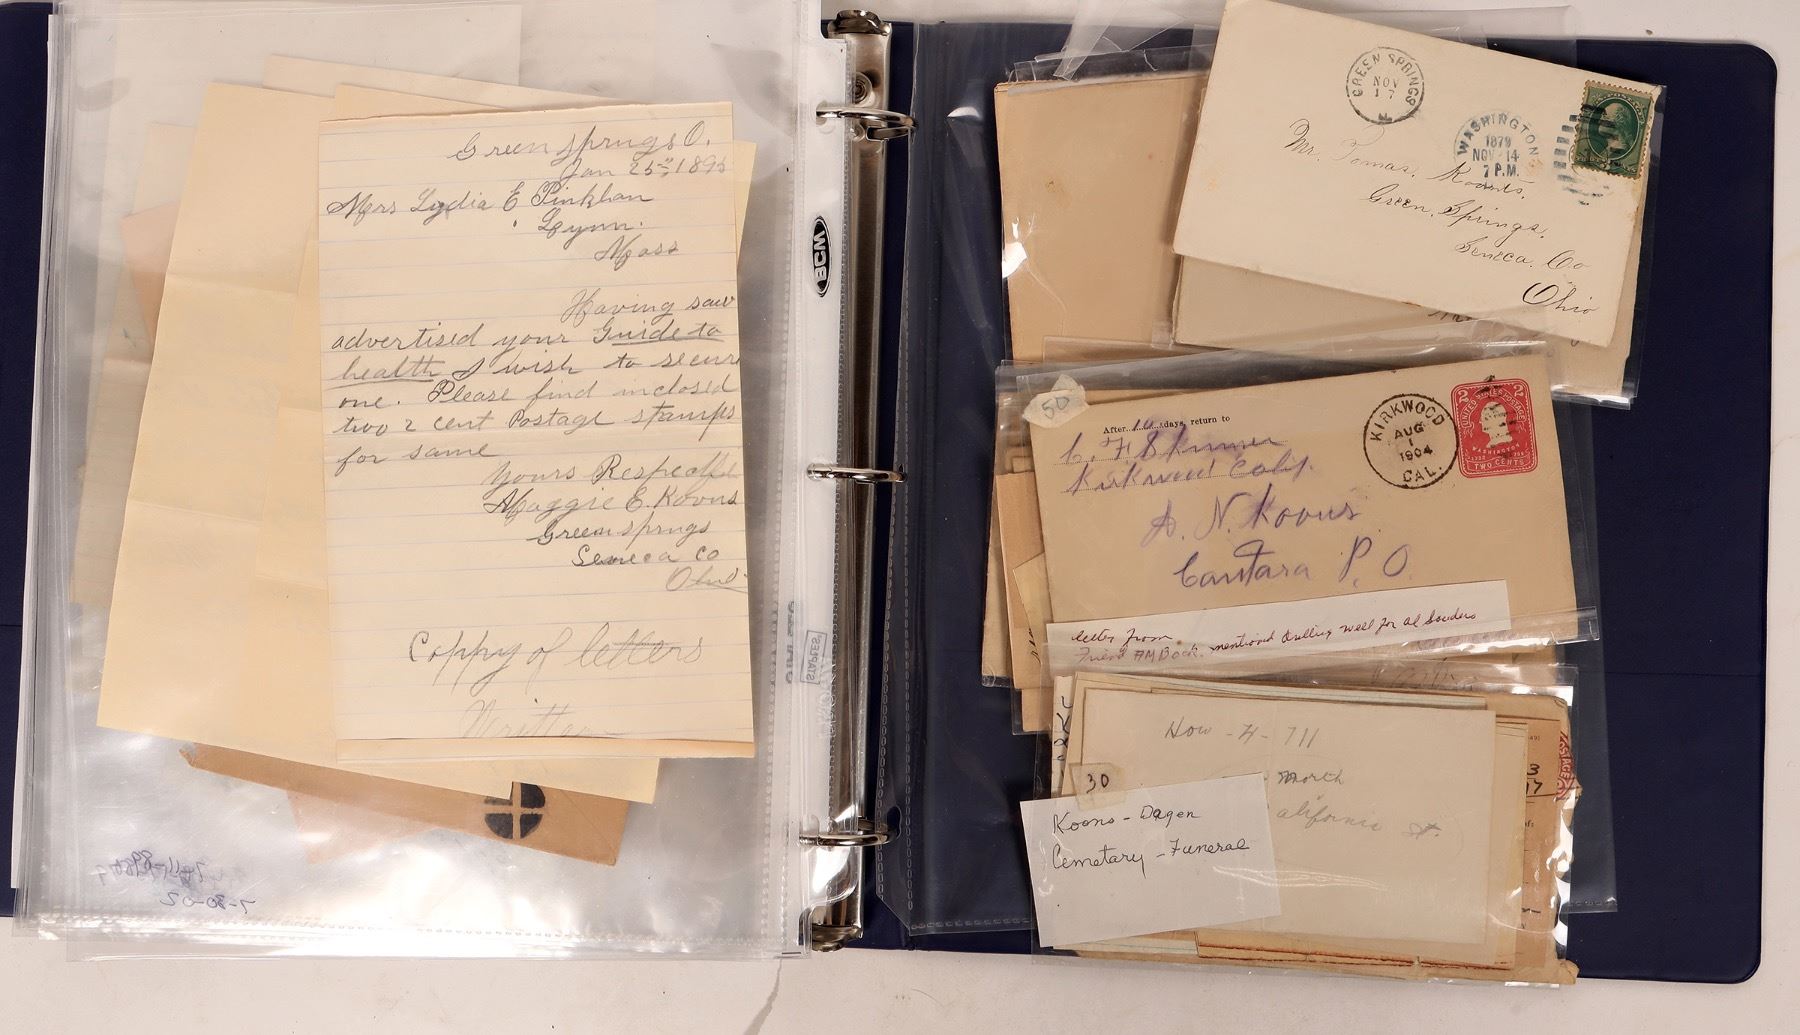 Green Springs O.
Jan 25th 1895
Mrs Lydia E Pinkhan
Lynn.
Mass
Having saw
advertised your Guide to
health I wish to secure
one. Please find inclosed
two 2 cent Postage stamps
for same
Yours Respectf
Maggie E. Koons
Green springs
Seneca Co
Ohio
Coppy of letters
Written
BCM
STAPLES
7-30-02
GREEN SPRINGS
NOV
17
WASHINGTON
1879
NOV 14
7 P.M.
Mr. Tomas. Roberts,
Green, Springs,
Seneca. Co
Ohio
50
After 10 days, return to
C. F Skinner
Kirkwood Calif.
KIRKWOOD
AUG
1
1904
CAL.
2 2
UNITED STATES POSTAGE
WASHINGTON
TWO CENTS
A. N. Koons
Cantara P. O.
letter from
Friend AM Bock. mentioned drilling well for Al Souders
How - 4 - 711
North
alifornia st.
30
Koons - Dagen
Cemetary - Funeral